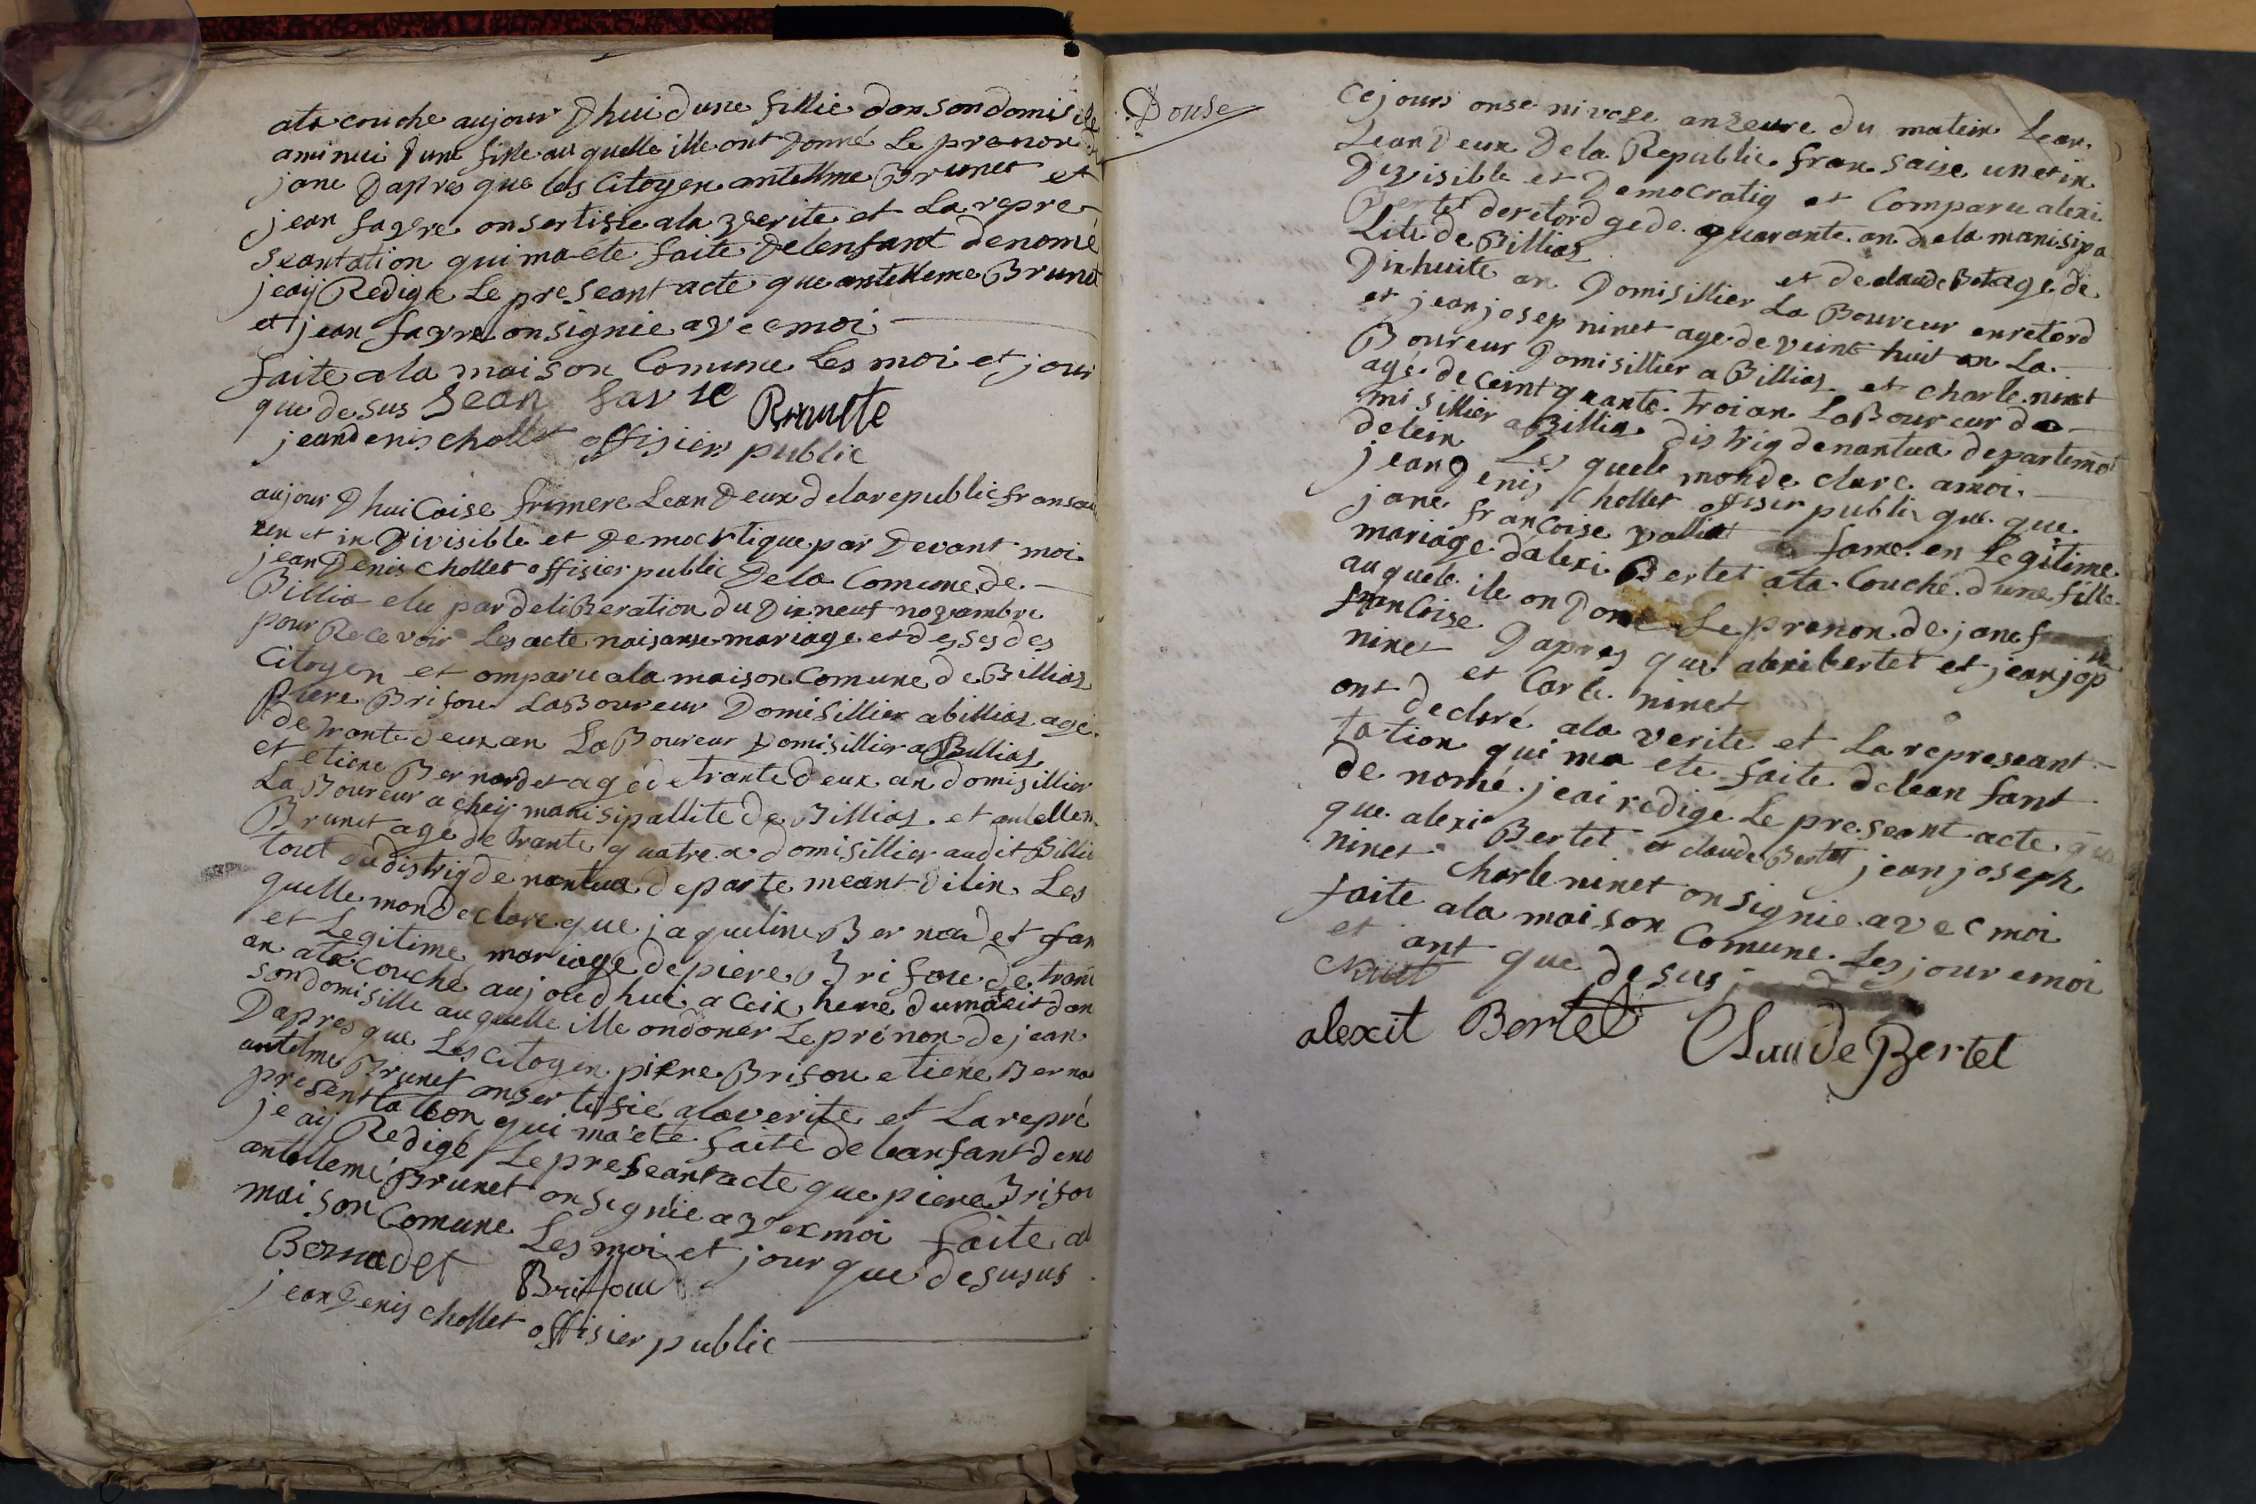 ata couche aujour Dhui dune fillie dan son domisile
aminui dune fille au quelle ille ont Donné Le prenon
jane Dapres que les Citoyen antellme Brunet et
jean favre on sertisie ala verite et La repre
seantation qui ma ete faite Delenfant denomé
jeaij Redige Le preseant acte que antelleme Brunet
et jean favre on signie avec moi
faite a la maison Comune Les moi et jour
que de sus Jean favre Brunette
jean denis chollet offisier public
aujour Dhui Caise frimere Lean Deux dela republic fransai
et in Divisible et Democrtique par Devant moi
jean Denis chollet offisier public De la Comune de
Billia elu par deliberation du Dix neuf novambre
pour Recevoir Les acte naisanse mariage et desses des
Citoyen et omparu ala maison Comune de Billias
Piere Brifou LaBoureur Domisillier a billias agé
de trante deux an LaBoureur Domisillier a Billias
et etiene Bernardet agé de trante deux an domisillier
LaBoureur a cheij manisipallite de Billias et antellem
Brunet age de trante quatre a domisillier audit Billia
tout du distrig de nantua departemeant dilin Les
quelle mon declare que jaqueline Bernadet fan
et Legitime mariage de piere Brifou de trant
an ata couché aujoudhui a ceix heure du matit dan
son domisille auquelle ille ondoner Le prénon de jean
Dapres que Les Citoyen piere Brifou etiene Berna
antelme Brunet on sertisié ala verite et La repré
sentation qui ma ete faite de leanfant deno
je aij Redigé Le preseant acte que piere Brifou
antelleme Brunet on signie avec moi faite al
maison Comune Les moi et jour que desusus
Bernadet Brifou
jean Denis chollet offisier public
Douse
Ce jours onse nivose anzeure du matein Lean
Lean Deux De la Republic fransaise un et in
Divisible et Democratig et Comparu alexi
Bertet deretord gede quarante an de la manisipa
Lite de Billias et de claude Betet age de
Dix huite an Domisillier La Boureur enretord
et jean josep ninet age de veint huit an La
Boureur Domisillier a Billias et charle ninet
agé de ceintquante troi an LaBoureur do
misillier a Billia distrig denantua departemant
delein Les quele monde clare amoi
jean Denis chollet offisier public que que
jane francoise valliet fame en Legitime
mariage dalexi Bertet ata Couché dune fille
auquele ile on Done Le prenon de jane
francoise Dapres que alexi bertet et jean jop
ninet et Carle ninet
ont declaré ala verite et La represeant
tation qui ma ete faite delean fant
de nomé jeai redigé Le preseant acte que
que alexi Bertet et claude Bertet jean joseph
ninet charle ninet on signie avec moi
faite ala maison Comune Les jour emoi
et ant que desus
alexit Bertet Claude Bertet